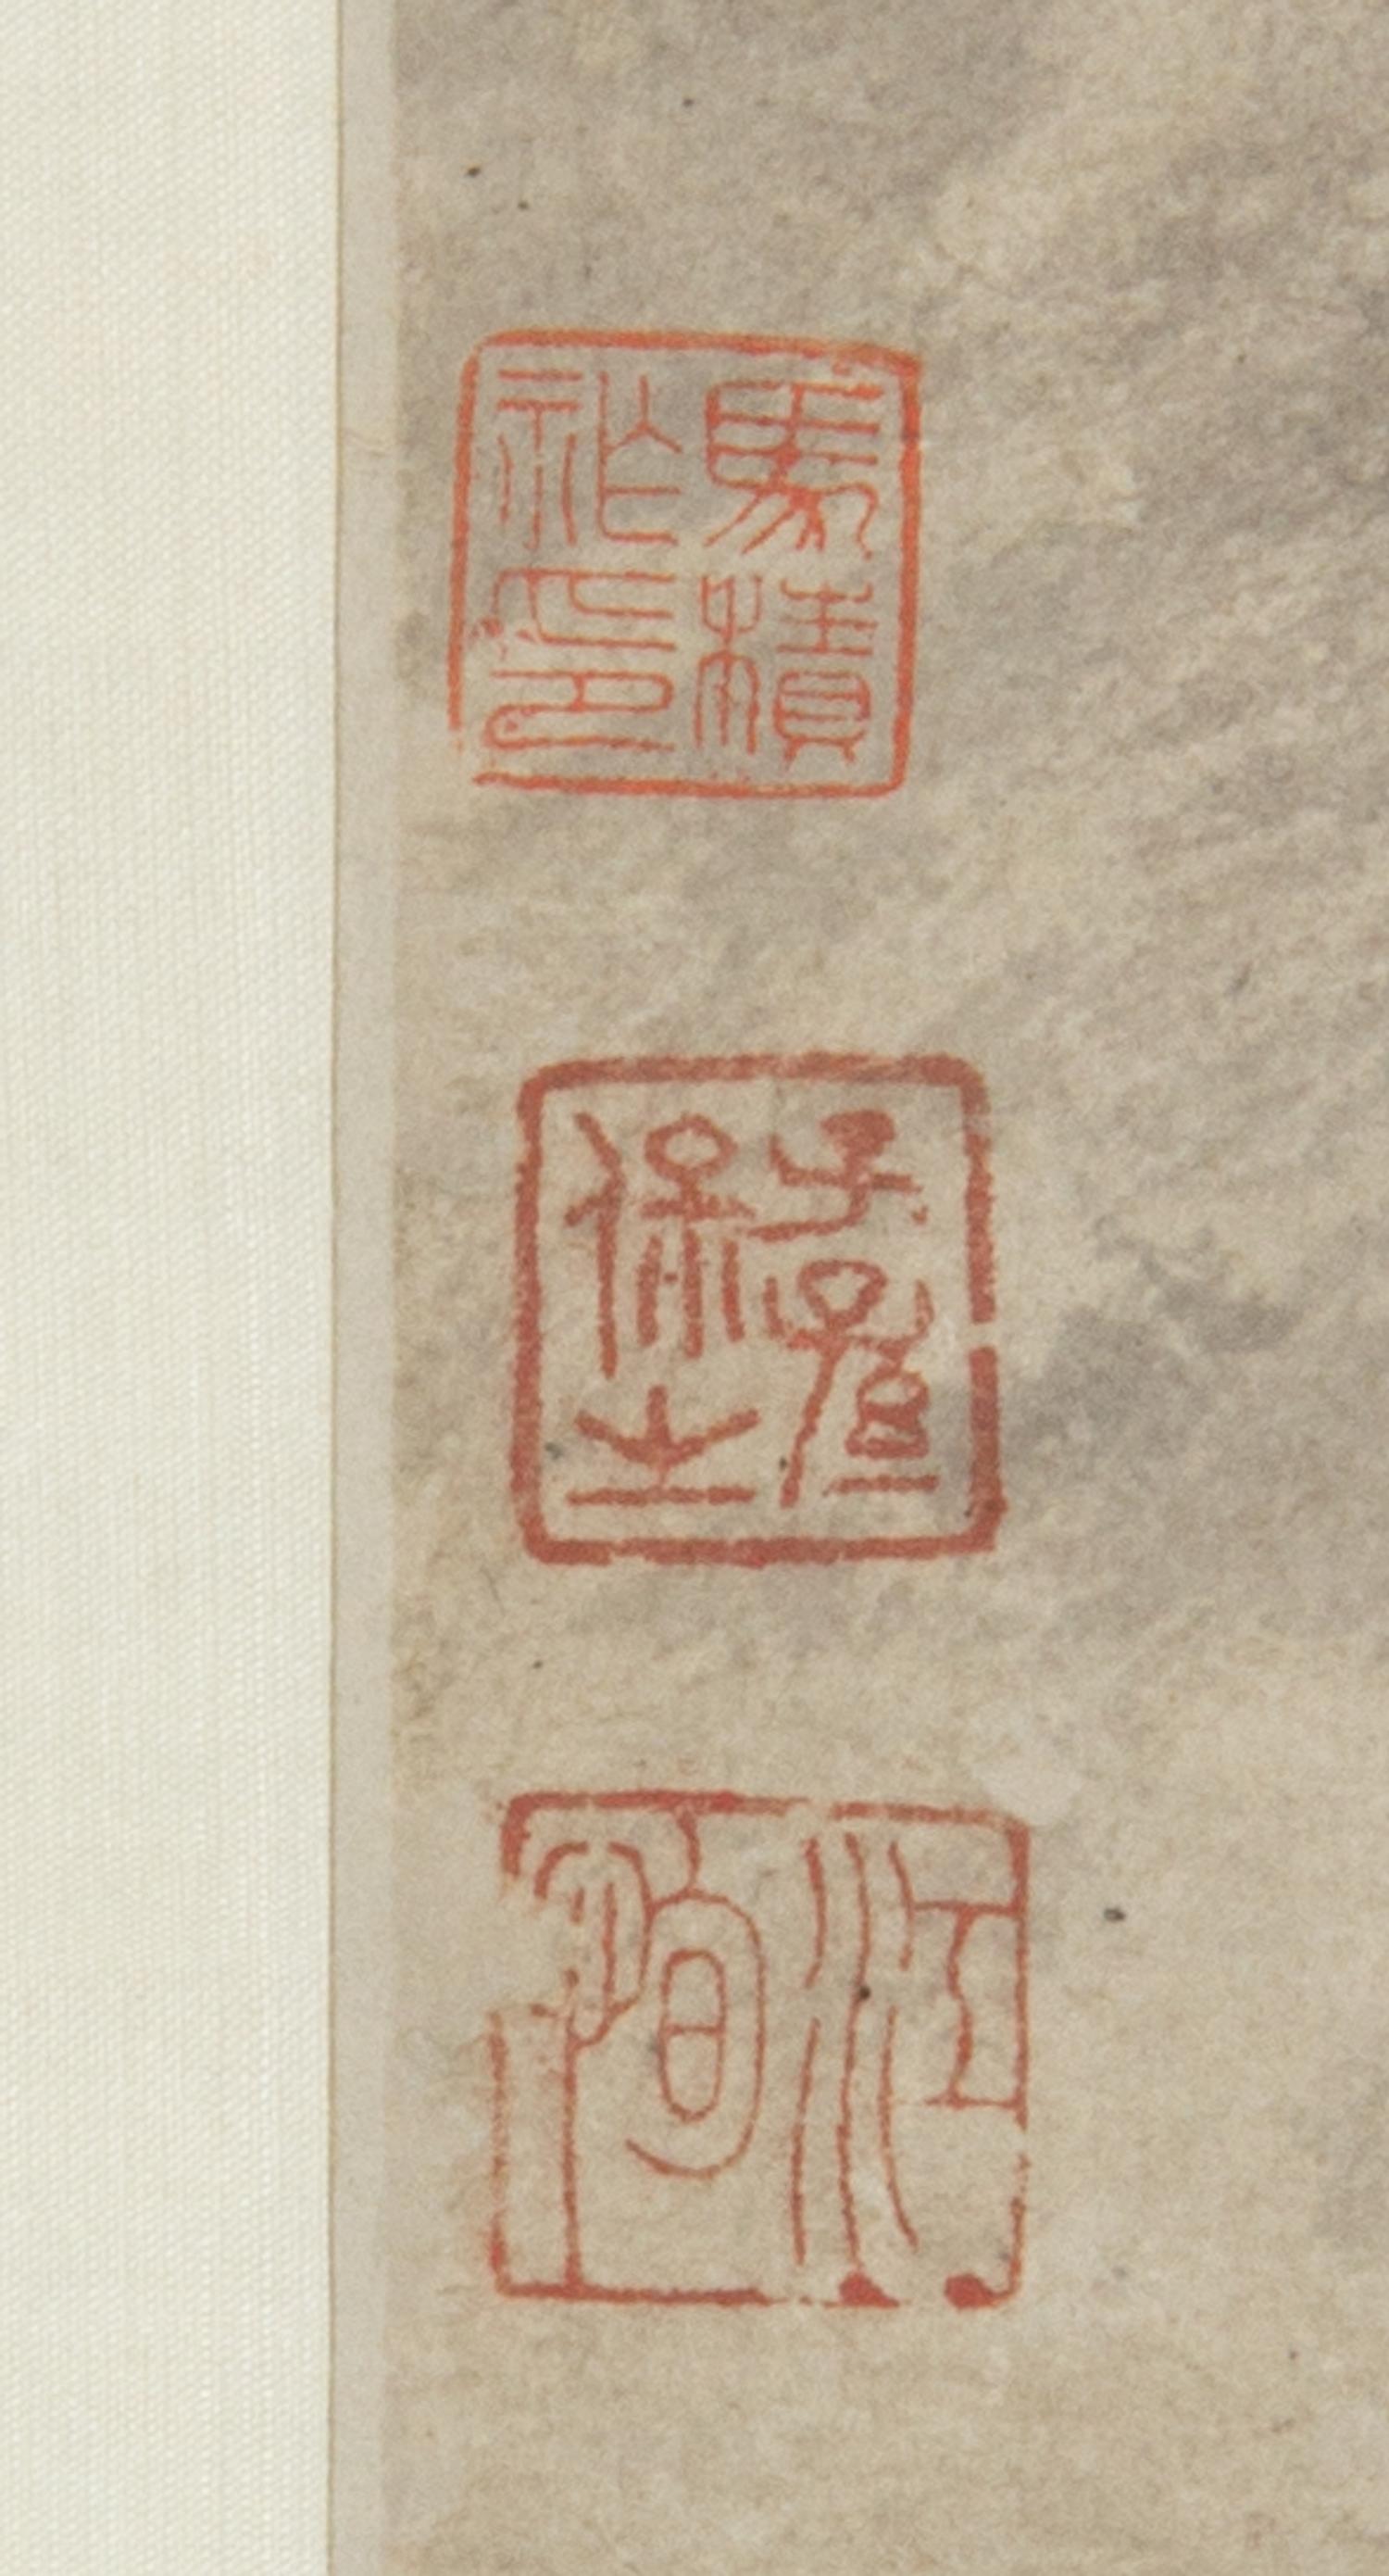 馬積祚印
子保之
江恂